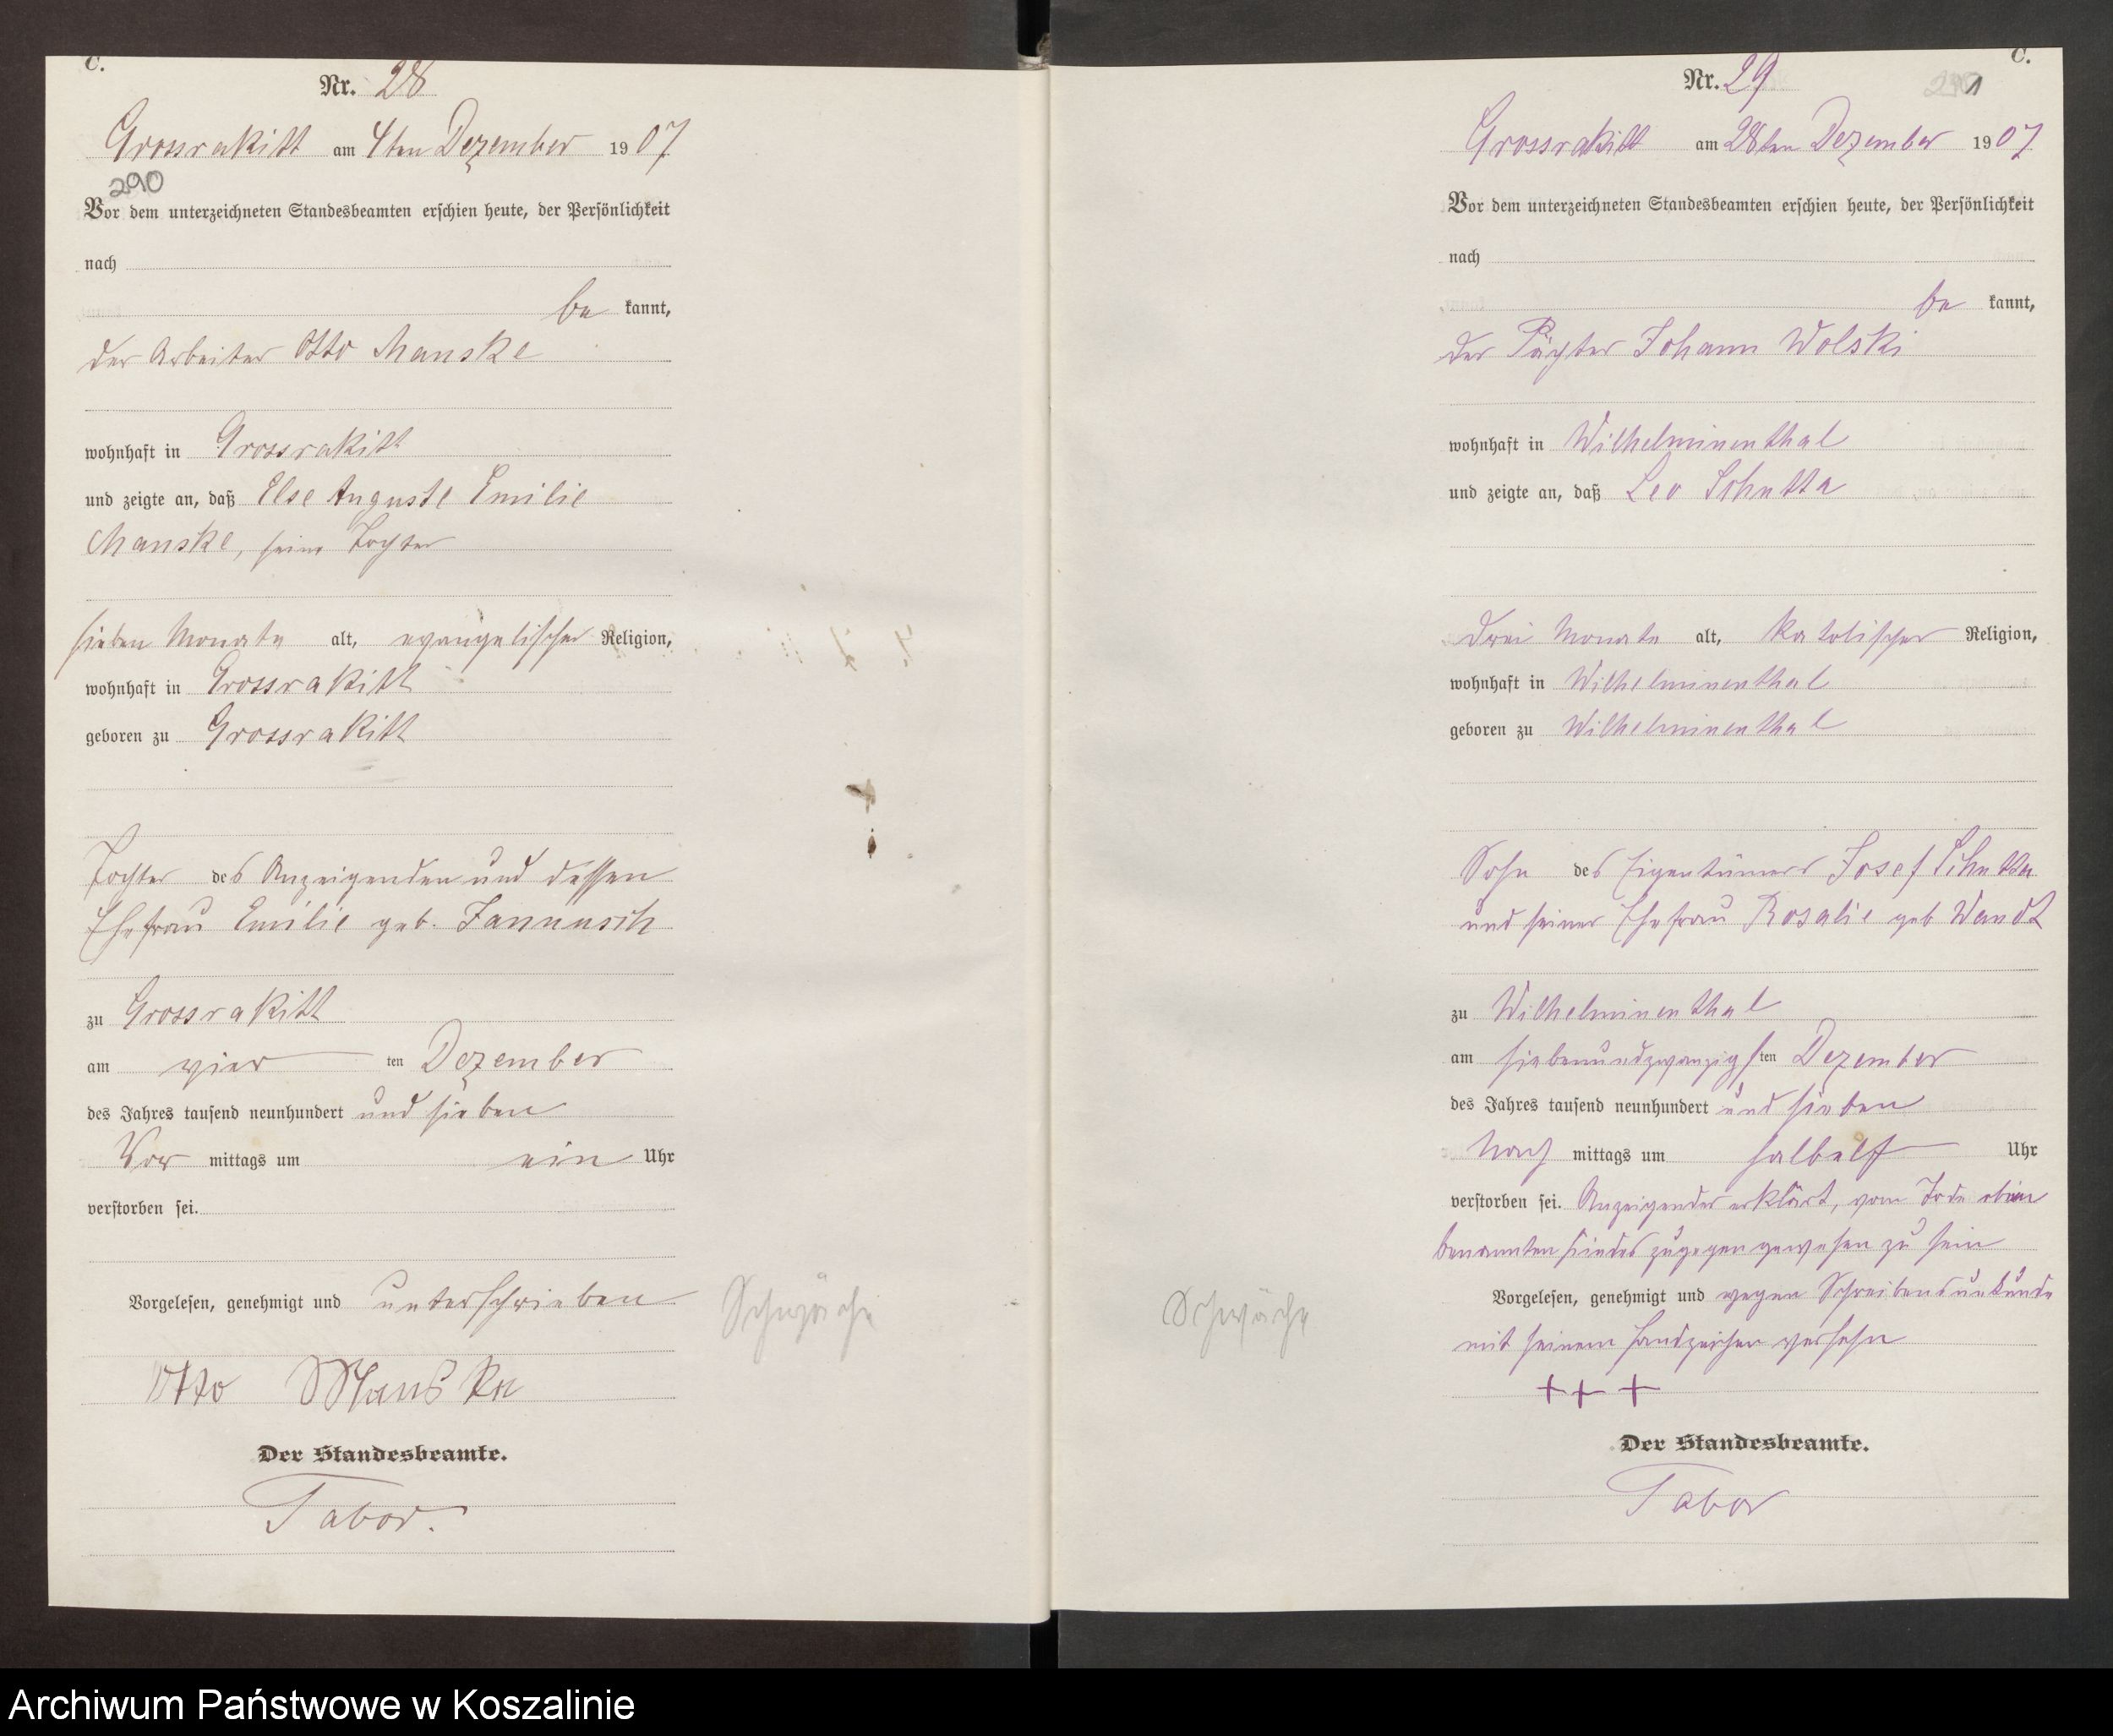 C.
Nr. 28
Grossrakitt am 4ten Dezember 1907
290
Vor dem unterzeichneten Standesbeamten erschien heute, der Persönlichkeit
nach
be kannt,
der Arbeiter Otto Manske
wohnhaft in Grossrakitt
und zeigte an, daß Else Auguste Emilie
Manske, seine Tochter
sieben Monate alt, evangelischer Religion,
wohnhaft in Grossrakitt
geboren zu Grossrakitt
Tochter des Anzeigenden und dessen
Ehefrau Emilie geb. Jannusch
zu Grossrakitt
am vier ten Dezember
des Jahres tausend neunhundert und sieben
Vor mittags um ein Uhr
verstorben sei.
Vorgelesen, genehmigt und unterschrieben
Schwäche
Otto Manske
Der Standesbeamte.
Tabor.
C.
Nr. 29
Grossrakitt am 28ten Dezember 1907
Vor dem unterzeichneten Standesbeamten erschien heute, der Persönlichkeit
nach
be kannt,
der Pächter Johann Wolski
wohnhaft in Wilhelminenthal
und zeigte an, daß Leo Schutta
drei Monate alt, katolischer Religion,
wohnhaft in Wilhelminenthal
geboren zu Wilhelminenthal
Sohn des Eigentümers Josef Schutta
und seiner Ehefrau Rosalie geb Wandt
zu Wilhelminenthal
am siebenundzwanzigsten Dezember
des Jahres tausend neunhundert und sieben
Nach mittags um halbelf Uhr
verstorben sei. Anzeigender erklärt, vom Tode oben
benannten Kindes zugegen gewesen zu sein
Vorgelesen, genehmigt und wegen Schreibensunkunde
mit seinem Handzeichen versehn
Schwäche
+ + +
Der Standesbeamte.
Tabor
Archiwum Państwowe w Koszalinie